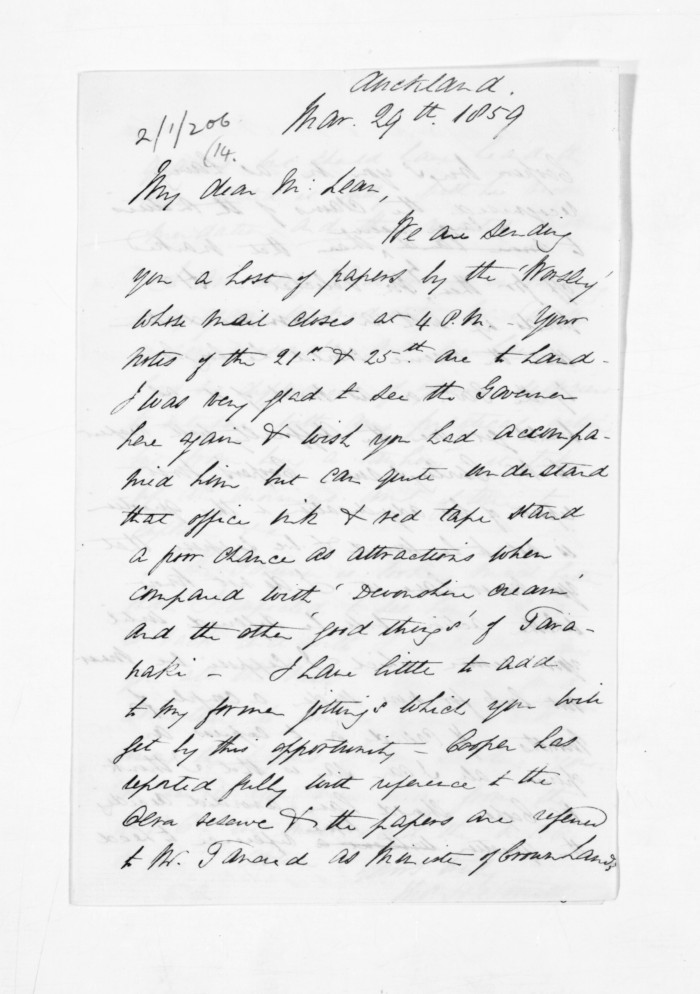 Auckland.
Mar. 29th. 1859
2/1/206
(14.
My dear Mc. Lean,
We are sending
you a host of papers by the 'Worsley'
whose mail closes at 4 P.M. - Your
notes of the 21st & 25th are to hand -
I was very glad to see the Governer
here again & wish you had accompa-
nied him but can quite understand
that office ink & red tape stand
a poor chance as attractions when
compared with 'Devonshire cream'
and the other 'good things' of Tara-
naki - I have little to add
to my former jottings which you will
get by this opportunity - Cooper has
reported fully with reference to the
reserve & the papers are referred
to Mr. Tancred as Minister of Crown Lands